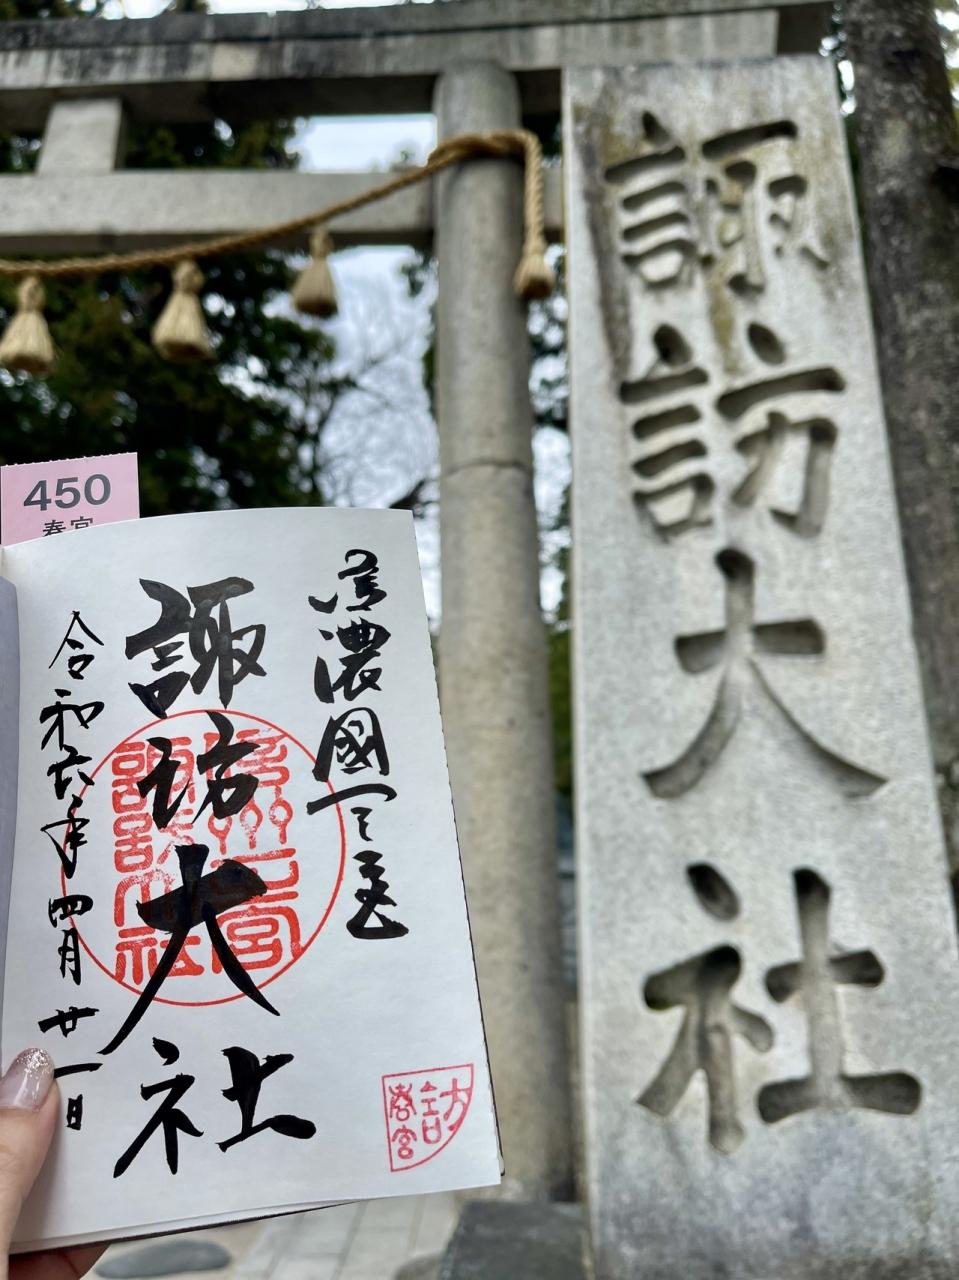 諏訪大社
450
春宮
信濃國一之宮
諏訪大社
令和六年四月廿一日
信州一宮
諏訪大社
訪
春宮